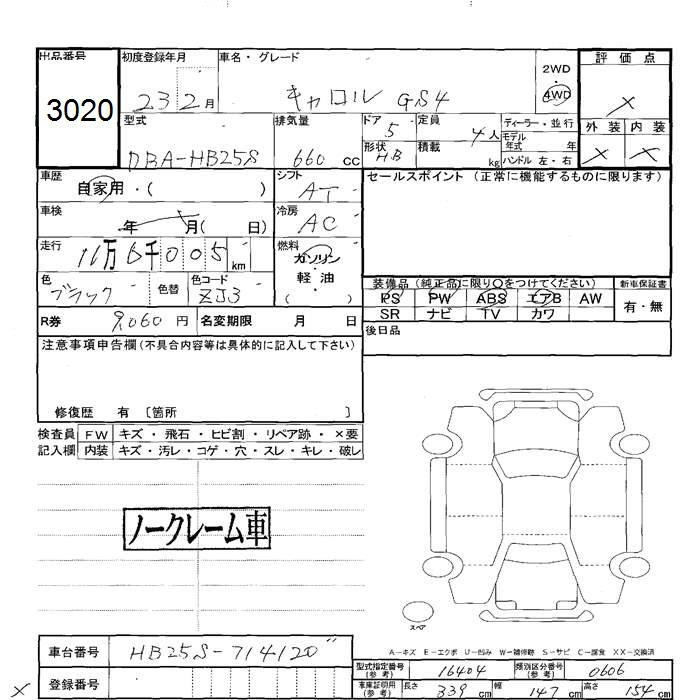 出品番号 初度登録年月 車名・グレード 評価点
3020 23 2月 キャロル GS4 2WD 4WD ×
型式 排気量 ドア 定員 ディーラー・並行 外装 内装
DBA-HB25S 660cc 5 4人 モデル年式 年 × ×
形状 HB 積載 kg ハンドル 左・右
車歴 シフト セールスポイント (正常に機能するものに限ります)
自家用・( ) AT
車検 年 月( 日) 冷房 AC
走行 11万6千005km 燃料 ガソリン・軽油・( )
色 ブラック 色替 色コード ZJ3
装備品 (純正品に限り○をつけてください) 新車保証書
PS PW ABS エアB AW 有・無
SR ナビ TV カワ
R券 9,060円 名変期限 月 日 後日品
注意事項申告欄(不具合内容等は具体的に記入して下さい)
修復歴 有 〔箇所 〕
検査員 FW キズ・飛石・ヒビ割・リペア跡・×要
記入欄 内装 キズ・汚レ・コゲ・穴・スレ・キレ・破レ
ノークレーム車
スペア
A-キズ E-エクボ U-凹み W-補修跡 S-サビ C-腐食 XX-交換済
車台番号 HB25S-714120
型式指定番号(参考) 16404 類別区分番号(参考) 0606
× 登録番号
車庫証明用(参考) 長さ 339cm 幅 147cm 高さ 154cm